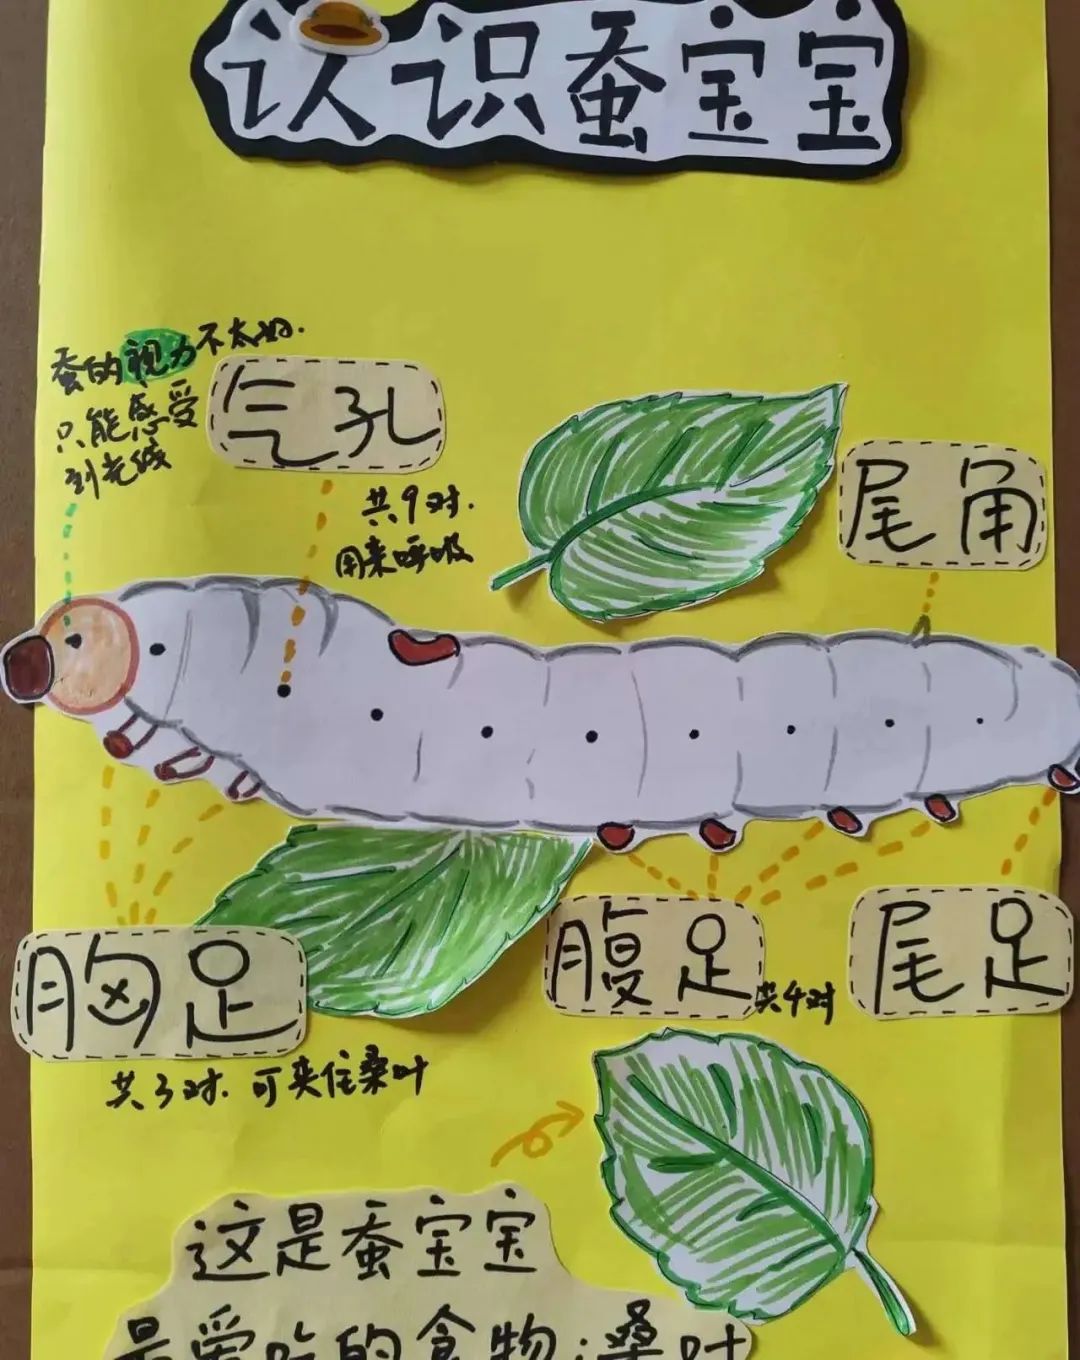 认识蚕宝宝
蚕的视力不太好.
只能感受
到光线
气孔
共9对.
用来呼吸
尾角
胸足
共3对.可夹住桑叶
腹足
共4对
尾足
这是蚕宝宝
最爱吃的食物:桑叶